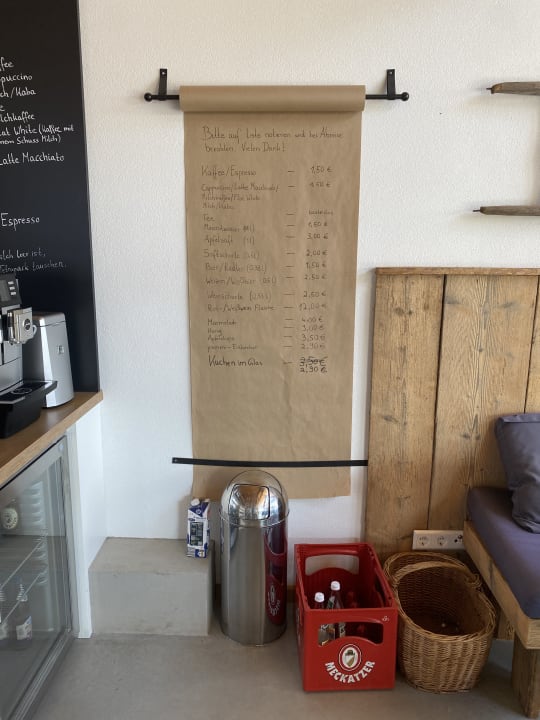 ffee
ppuccino
ch/Kaba
ee
lchkaffee
at White (Kaffee mit
nem Schuss Milch)
Latte Macchiato
Espresso
ilch leer ist,
Tetrapack tauschen.
Bitte auf Liste notieren und bei Abreise
bezahlen. Vielen Dank!
Kaffee/Espresso — 1,50 €
Cappuccino/Latte Macchiato/ — 1,50 €
Milchkaffee/Flat White
Milch/Kaba
Tee — kostenlos
Mineralwasser — 1,50 €
Apfelsaft (1l) — 3,00 €
Saftschorle — 2,00 €
Bier/Radler (0,33l) — 1,50 €
Weizen/Weißbier (0,5l) — 2,50 €
Weinschorle — 2,50 €
Rot-/Weißwein Flasche — 12,00 €
Marmelade — 4,00 €
Honig — 3,00 €
— 3,50 €
— 2,30 €
Kuchen im Glas — 3,50 €
2,30 €
MECKATZER